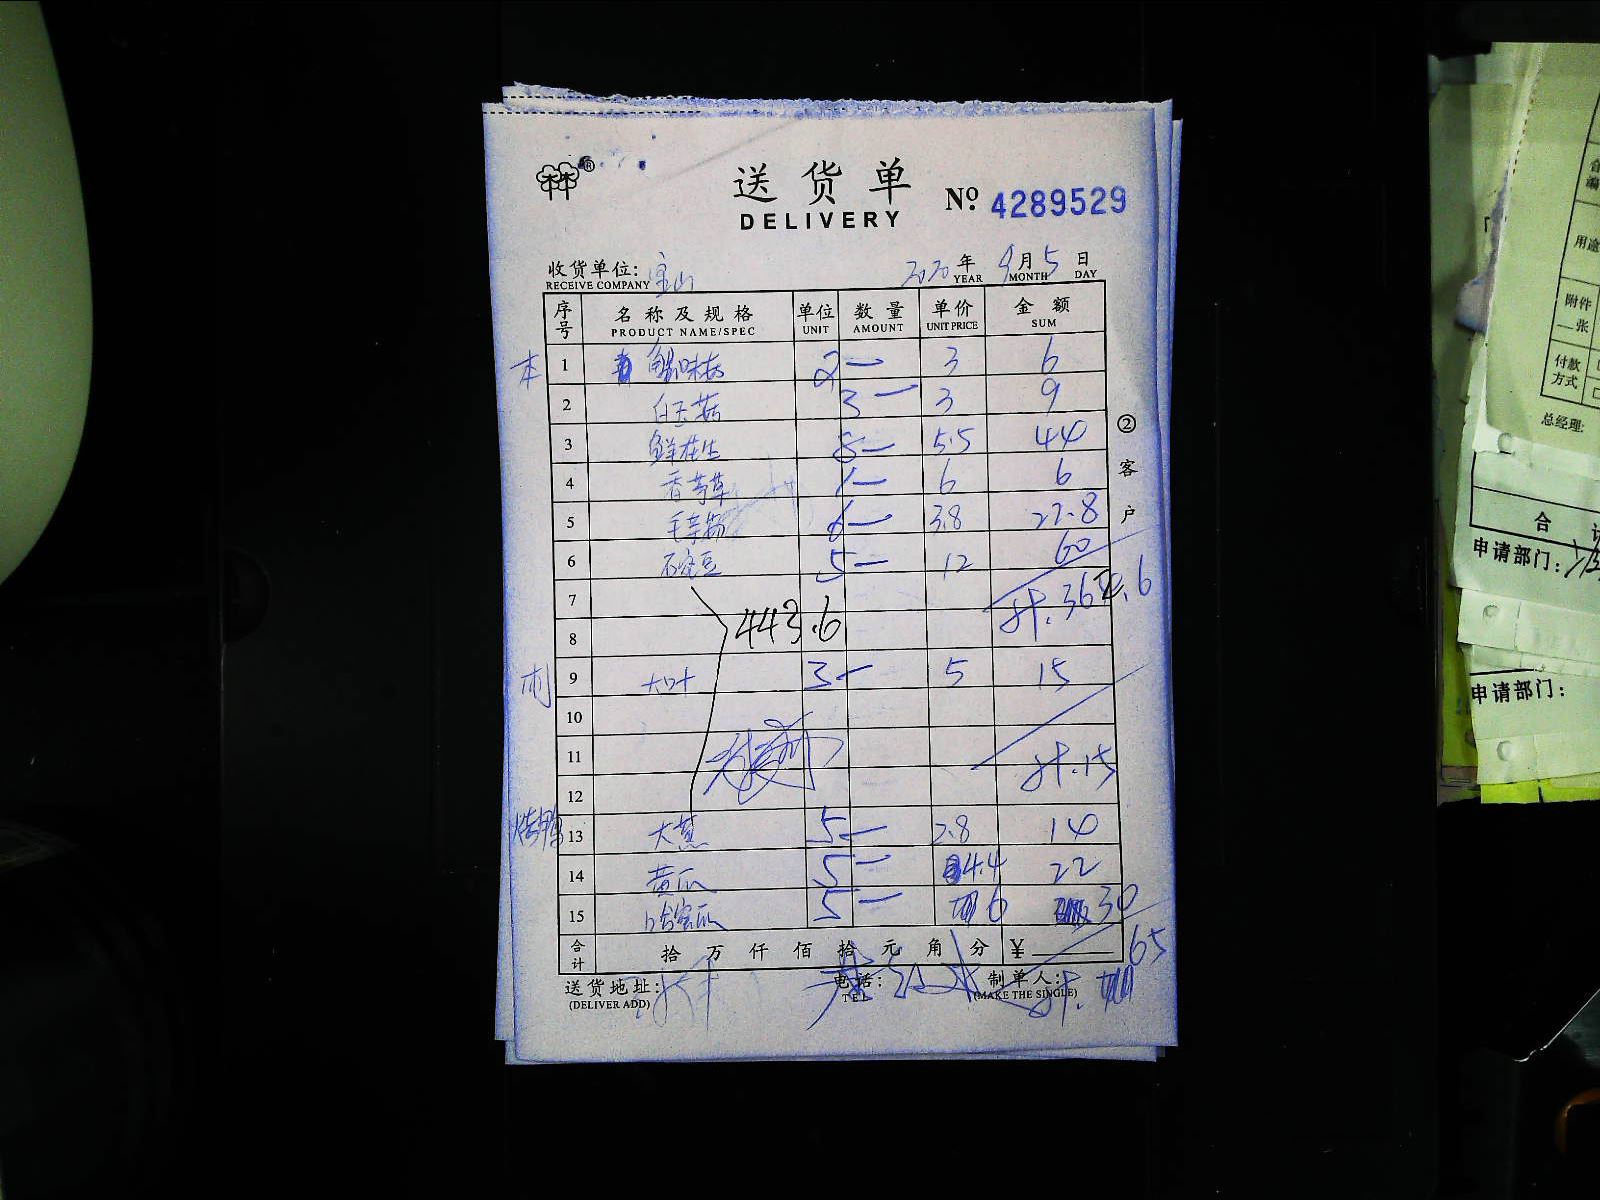 送货单
DELIVERY
№ 4289529
收货单位: 宝山 2020年9月5日
RECEIVE COMPANY YEAR MONTH DAY
序号 名称及规格 单位 数量 单价 金额
PRODUCT NAME/SPEC UNIT AMOUNT UNIT PRICE SUM
本 1 蟹味菇 2 — 3 6
2 白玉菇 3 — 3 9
3 5.5 44
4 香茅草 1 — 6 6
5 6 — 3.8 22.8
6 5 — 12 60
7 计.36 .6
8 443.6
9 大叶 3 — 5 15
10
11 计.15
12
烤鸭 13 大葱 5 — 2.8 14
14 黄瓜 5 — 4.4 22
15 哈密瓜 5 — 6 30
合计 拾 万 仟 佰 拾 元 角 分 ¥ 65
送货地址: 电话: 制单人:
(DELIVER ADD) TEL (MAKE THE SINGLE)
计.
② 客户
用途
附件
一张
付款
方式
总经理:
合
申请部门:
申请部门: